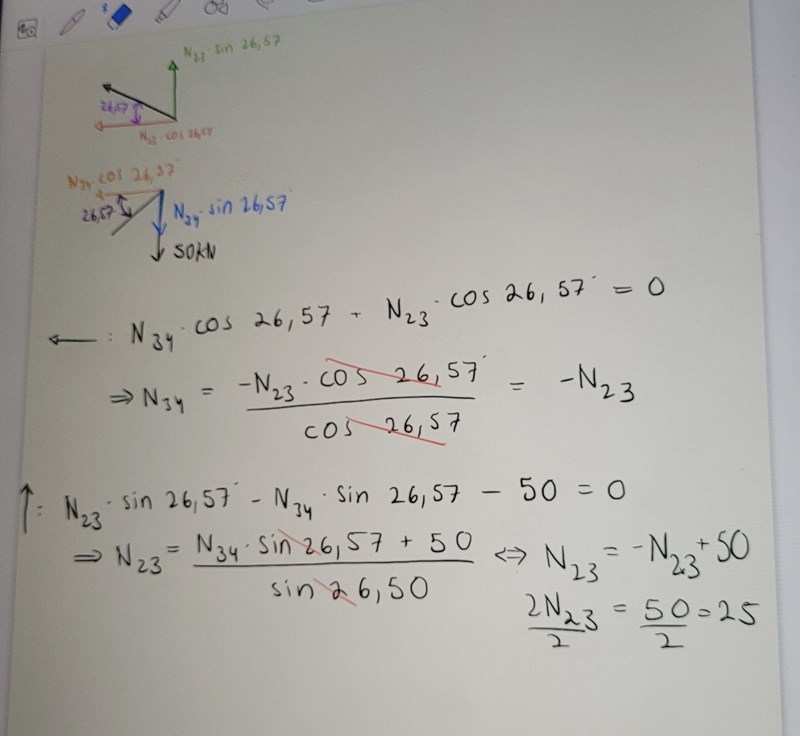 N₂₃ · sin 26,57
26,57
N₂₃ · cos 26,57
N₃₄ cos 26,57
26,57
N₃₄ · sin 26,57
50kN
← : N₃₄ · cos 26,57 + N₂₃ · cos 26,57 = 0
⇒ N₃₄ = (-N₂₃ · cos 26,57) / (cos 26,57) = -N₂₃
↑ : N₂₃ · sin 26,57 - N₃₄ · sin 26,57 - 50 = 0
⇒ N₂₃ = (N₃₄ · sin 26,57 + 50) / (sin 26,50) ⇔ N₂₃ = -N₂₃ + 50
2N₂₃ / 2 = 50 / 2 = 25